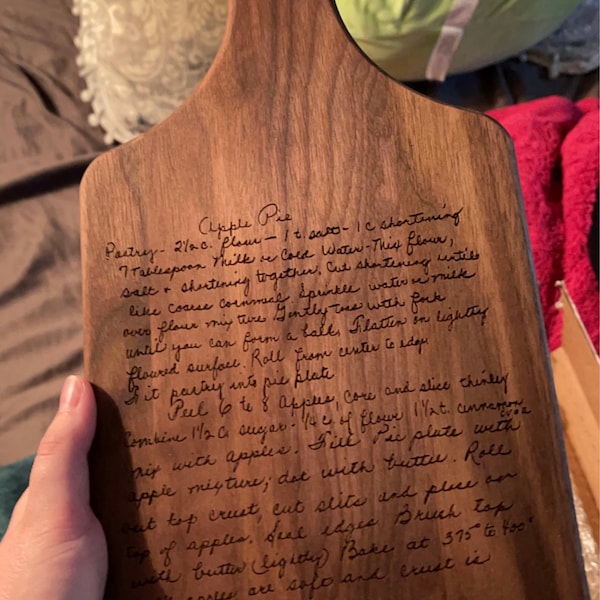 Apple Pie
Pastry - 2 1/2 c. flour - 1 t. salt - 1 c shortening
7 Tablespoon Milk or Cold Water - Mix flour,
salt & shortening together, Cut shortening until
like coarse cornmeal Sprinkle water or milk
over flour mixture Gently toss with fork
until you can form a ball, Flatten on lightly
floured surface. Roll from center to edge.
Fit pastry into pie plate
Peel 6 to 8 Apples, core and slice thinly
Combine 1 1/2 C. sugar - 1/4 c of flour 1 1/2 t. cinnamon
mix with apples. Fill Pie plate with
apple mixture, dot with butter. Roll
out top crust, cut slits and place on
top of apples. Seal edges Brush top
with butter (lightly) Bake at 375° to 400°
apples are soft and crust is